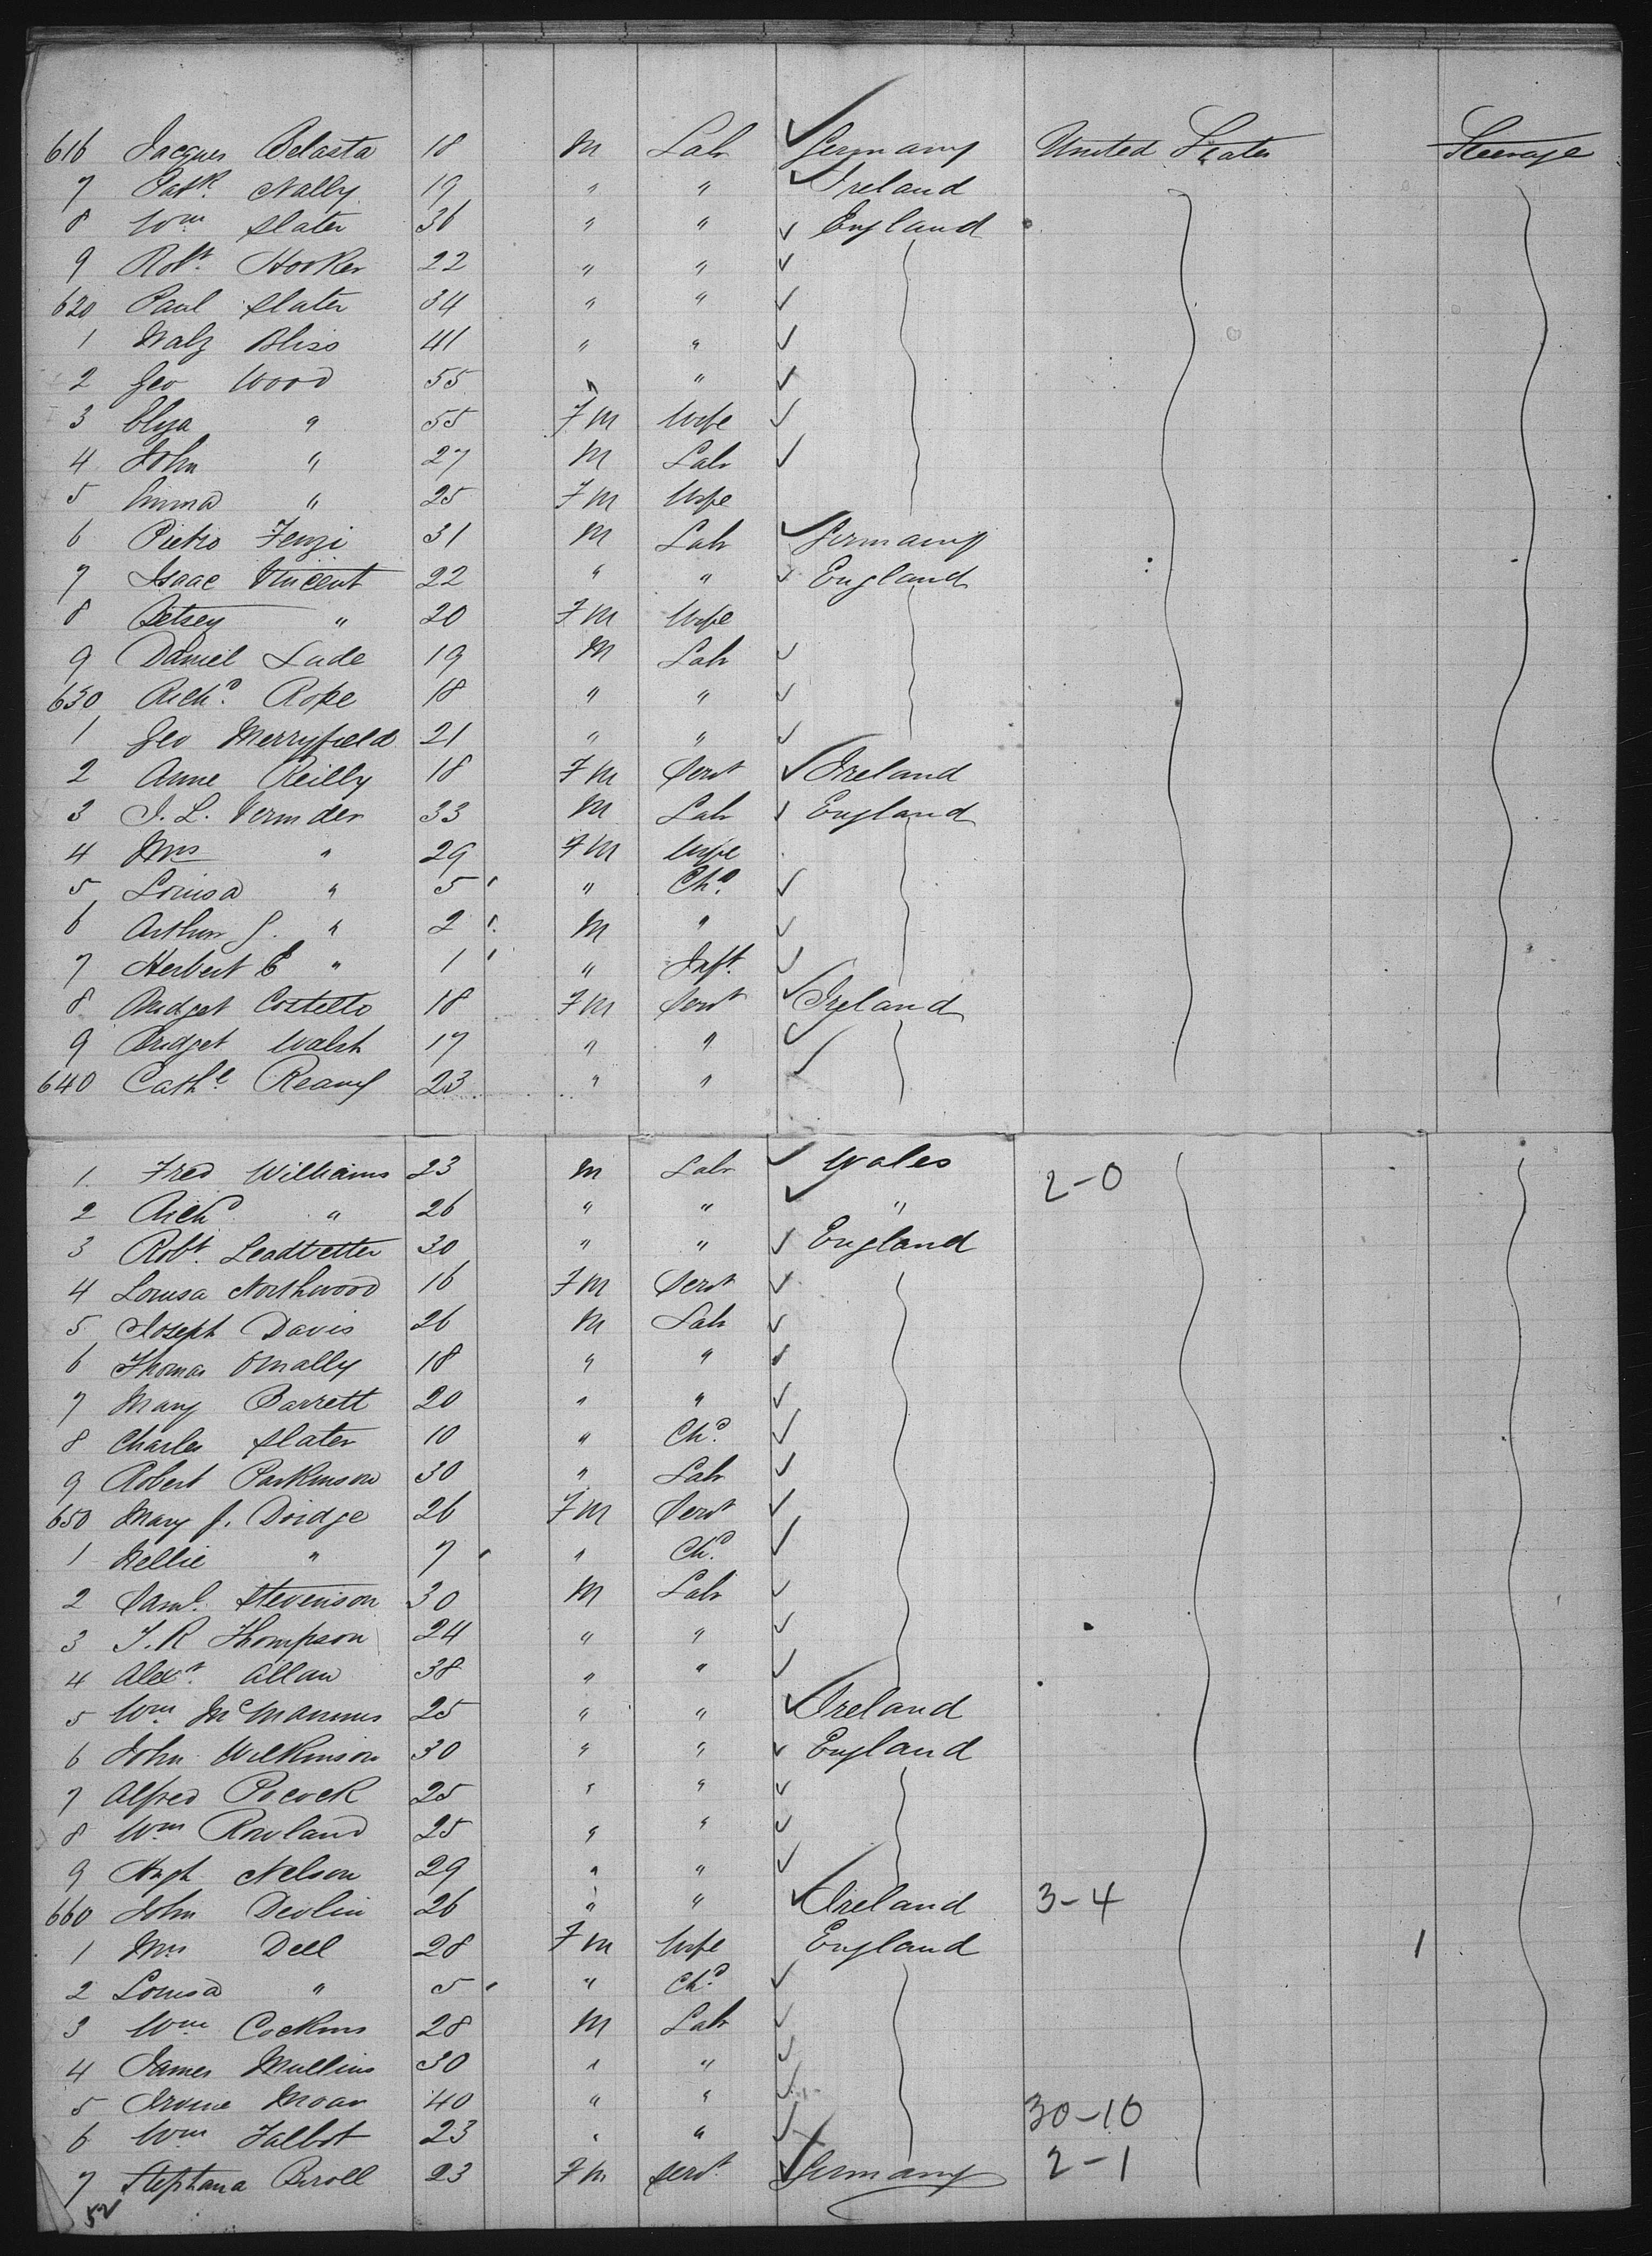 616 Jacques Belasta 18 M Labr Germany United States Steerage
7 Patk Nally 19 " " Ireland
8 Wm Slater 36 " " England
9 Robt Hooker 22 " "
620 Paul Slater 34 " "
1 Walz Bliss 41 " "
2 Geo Wood 55 " "
3 Elyza " 55 Fm Wife
4 John " 27 M Labr
5 Emma " 25 Fm Wife
6 Pietro Fenzi 31 M Labr Germany
7 Isaac Vincent 22 " " England
8 Betsey " 20 Fm Wife
9 Daniel Lade 19 M Labr
630 Richd Rope 18 " "
1 Geo Merryfield 21 " "
2 Anne Reilly 18 Fm Servt Ireland
3 J. L. Vermder 33 M Labr England
4 Mrs " 29 Fm Wife
5 Louisa " 5 " Chd
6 Arthur J. " 2 M "
7 Herbert E " 1 " Inft.
8 Bridget Costello 18 Fm Servt Ireland
9 Bridget Walsh 17 " "
640 Cathe Reamy 23 " "
1 Fred Williams 23 M Labr Wales 2-0
2 Richd " 26 " " "
3 Robt. Leadbetter 30 " " England
4 Louisa Northwood 16 Fm Servt
5 Joseph Davis 26 M Labr
6 Thomas Omally 18 " "
7 Mary Barrett 20 " "
8 Charles Slater 10 " Chd
9 Robert Parkinson 30 " Labr
650 Mary J. Doidge 26 Fm Servt
1 Nellie " 7 " Chd
2 Saml. Stevenson 30 M Labr
3 J. R Thompson 24 " "
4 Alexr. Allan 38 " "
5 Wm McManus 25 " " Ireland
6 John Wilkinson 30 " " England
7 Alfred Pocock 25 " "
8 Wm Rowland 25 " "
9 Hugh Nelson 29 " "
660 John Devlin 26 " " Ireland 3-4
1 Mrs Dell 28 Fm Wife England 1
2 Louisa " 5 " Chd
3 Wm Cockins 28 M Labr
4 James Mullins 30 " "
5 Irvine Moar 40 " " 30-10
6 Wm Talbot 23 " "
7 Stephana Biroll 23 Fm Servt. Germany 2-1
52